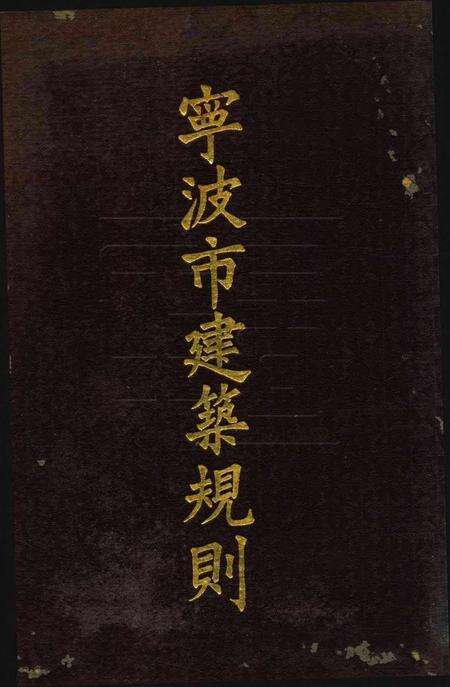 寧波市建築規則